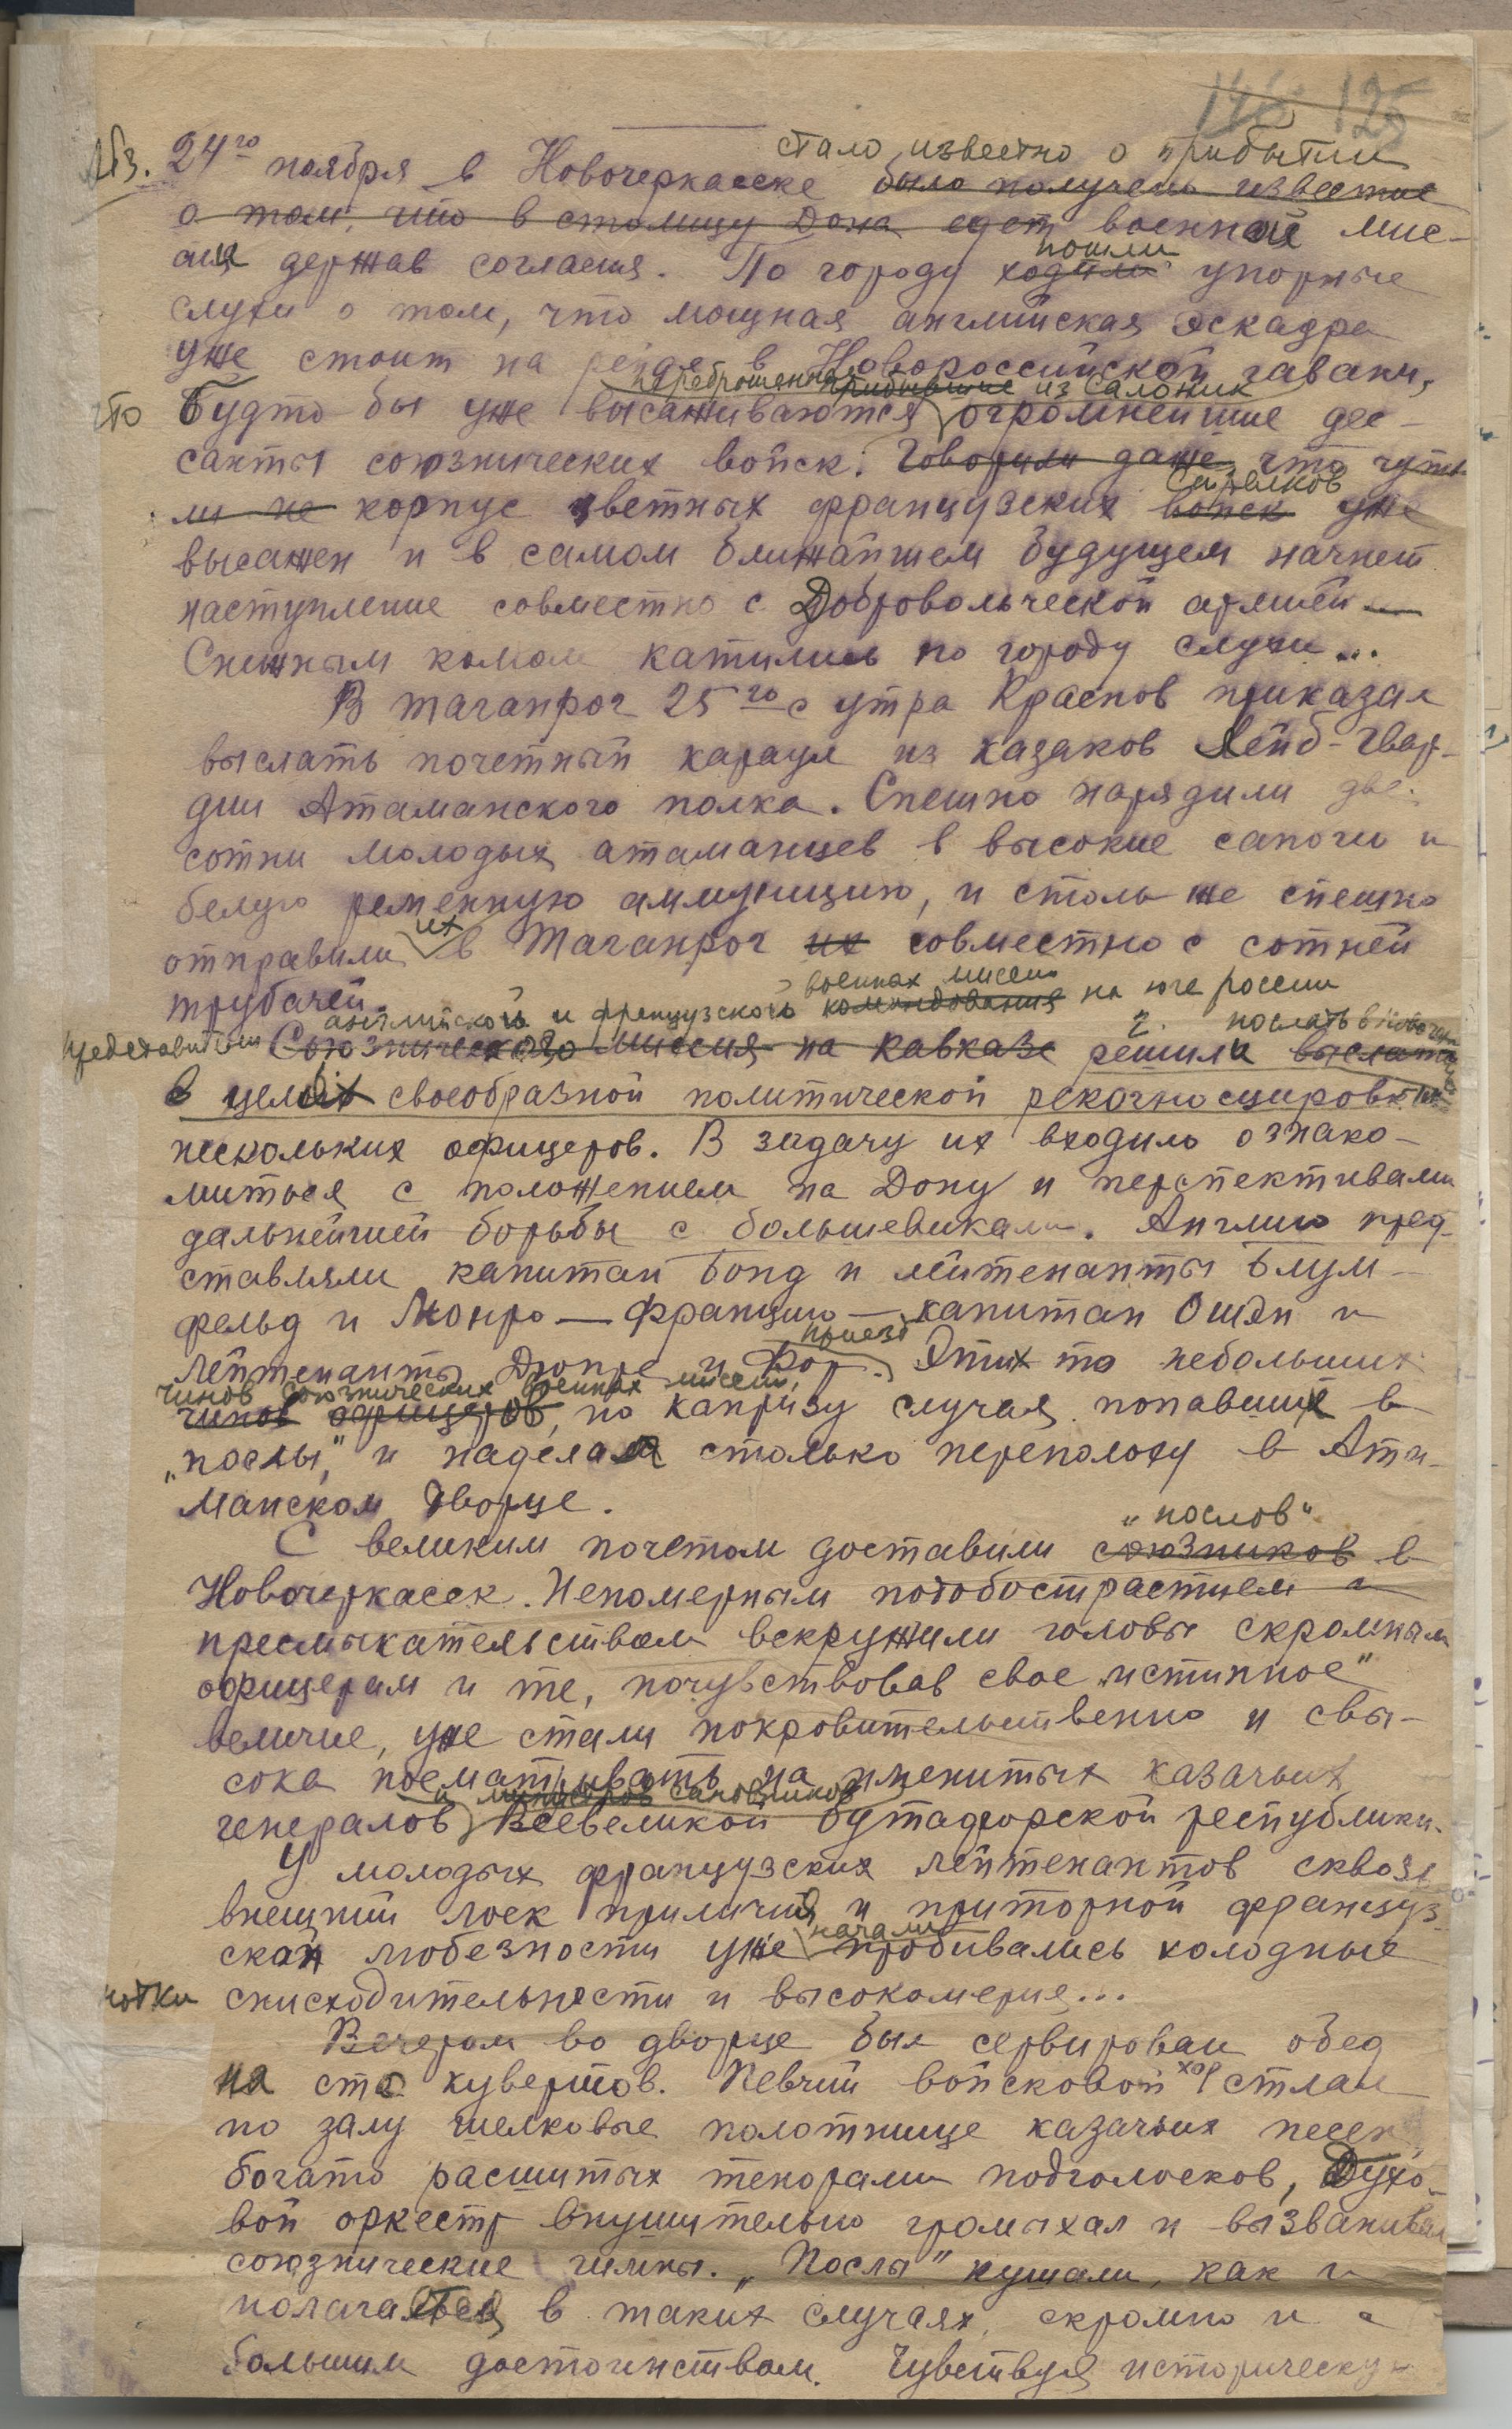 146 125
Абз. 24го ноября в Новочеркасске было получено известие
стало известно о прибытии
о том, что в столицу Дона едет военной мис-
сии держав согласия. По городу ходили упорные
пошли
слухи о том, что мощная английская эскадра
уже стоит на рейде в Новороссийской гавани,
переброшенные прибывшие из Салоник
что будто бы уже высаживаются огромнейшие дес-
санты союзнических войск. Говорили даже, что чуть
ли не корпус цветных французских войск уже
стрелков
высажен и в самом ближайшем будущем начнет
наступление совместно с Добровольческой армией
Снежным комом катились по городу слухи...
В Таганрог 25го с утра Краснов приказал
выслать почетный караул из казаков Лейб-Гвар-
дии Атаманского полка. Спешно нарядили две
сотни молодых атаманцев в высокие сапоги и
белую ременную аммуницию, и столь же спешно
отправили их в Таганрог их совместно с сотней
трубачей.
английской и французской военных миссий командования на юге россии
Представители Союзнического миссия на Кавказе решили выслать
послать в Новочеркасск
в целях своеобразной политической рекогносцировки
нескольких офицеров. В задачу их входило ознако-
миться с положением на Дону и перспективами
дальнейшей борьбы с большевиками. Англию пред-
ставляли капитан Бонд и лейтенанты Блум-
фельд и Монро — Францию — капитан Ошэн и
лейтенанты Дюпре и Фор. Этих то небольших
приезд
чинов союзнических военных миссий,
чинов офицеров, по капризу случая попавших в
„послы", и наделал столько переполоху в Ата-
манском дворце.
С великим почетом доставили союзников в
„послов"
Новочеркасск. Непомерным подобострастием и
пресмыкательством вскружили головы скромным
офицерам и те, почувствовав свое „истинное"
величие, уже стали покровительственно и свы-
сока посматривать на именитых казачьих
и министров сановников
генералов Всевеликой бутафорской республики.
У молодых французских лейтенантов сквозь
внешний лоск приличия и приторной француз-
ской любезности уже начали пробивались холодные
нотки снисходительности и высокомерия...
Вечером во дворце был сервирован обед
на сто кувертов. Певчий войсковой хор стлал
по залу шелковые полотнище казачьих песен
богато расшитых тенорами подголосков, духо-
вой оркестр внушительно громыхал и вызванивал
союзнические гимны. „Послы" кушали, как и
полагается в таких случаях, скромно и с
большим достоинством. Чувствуя историческу-